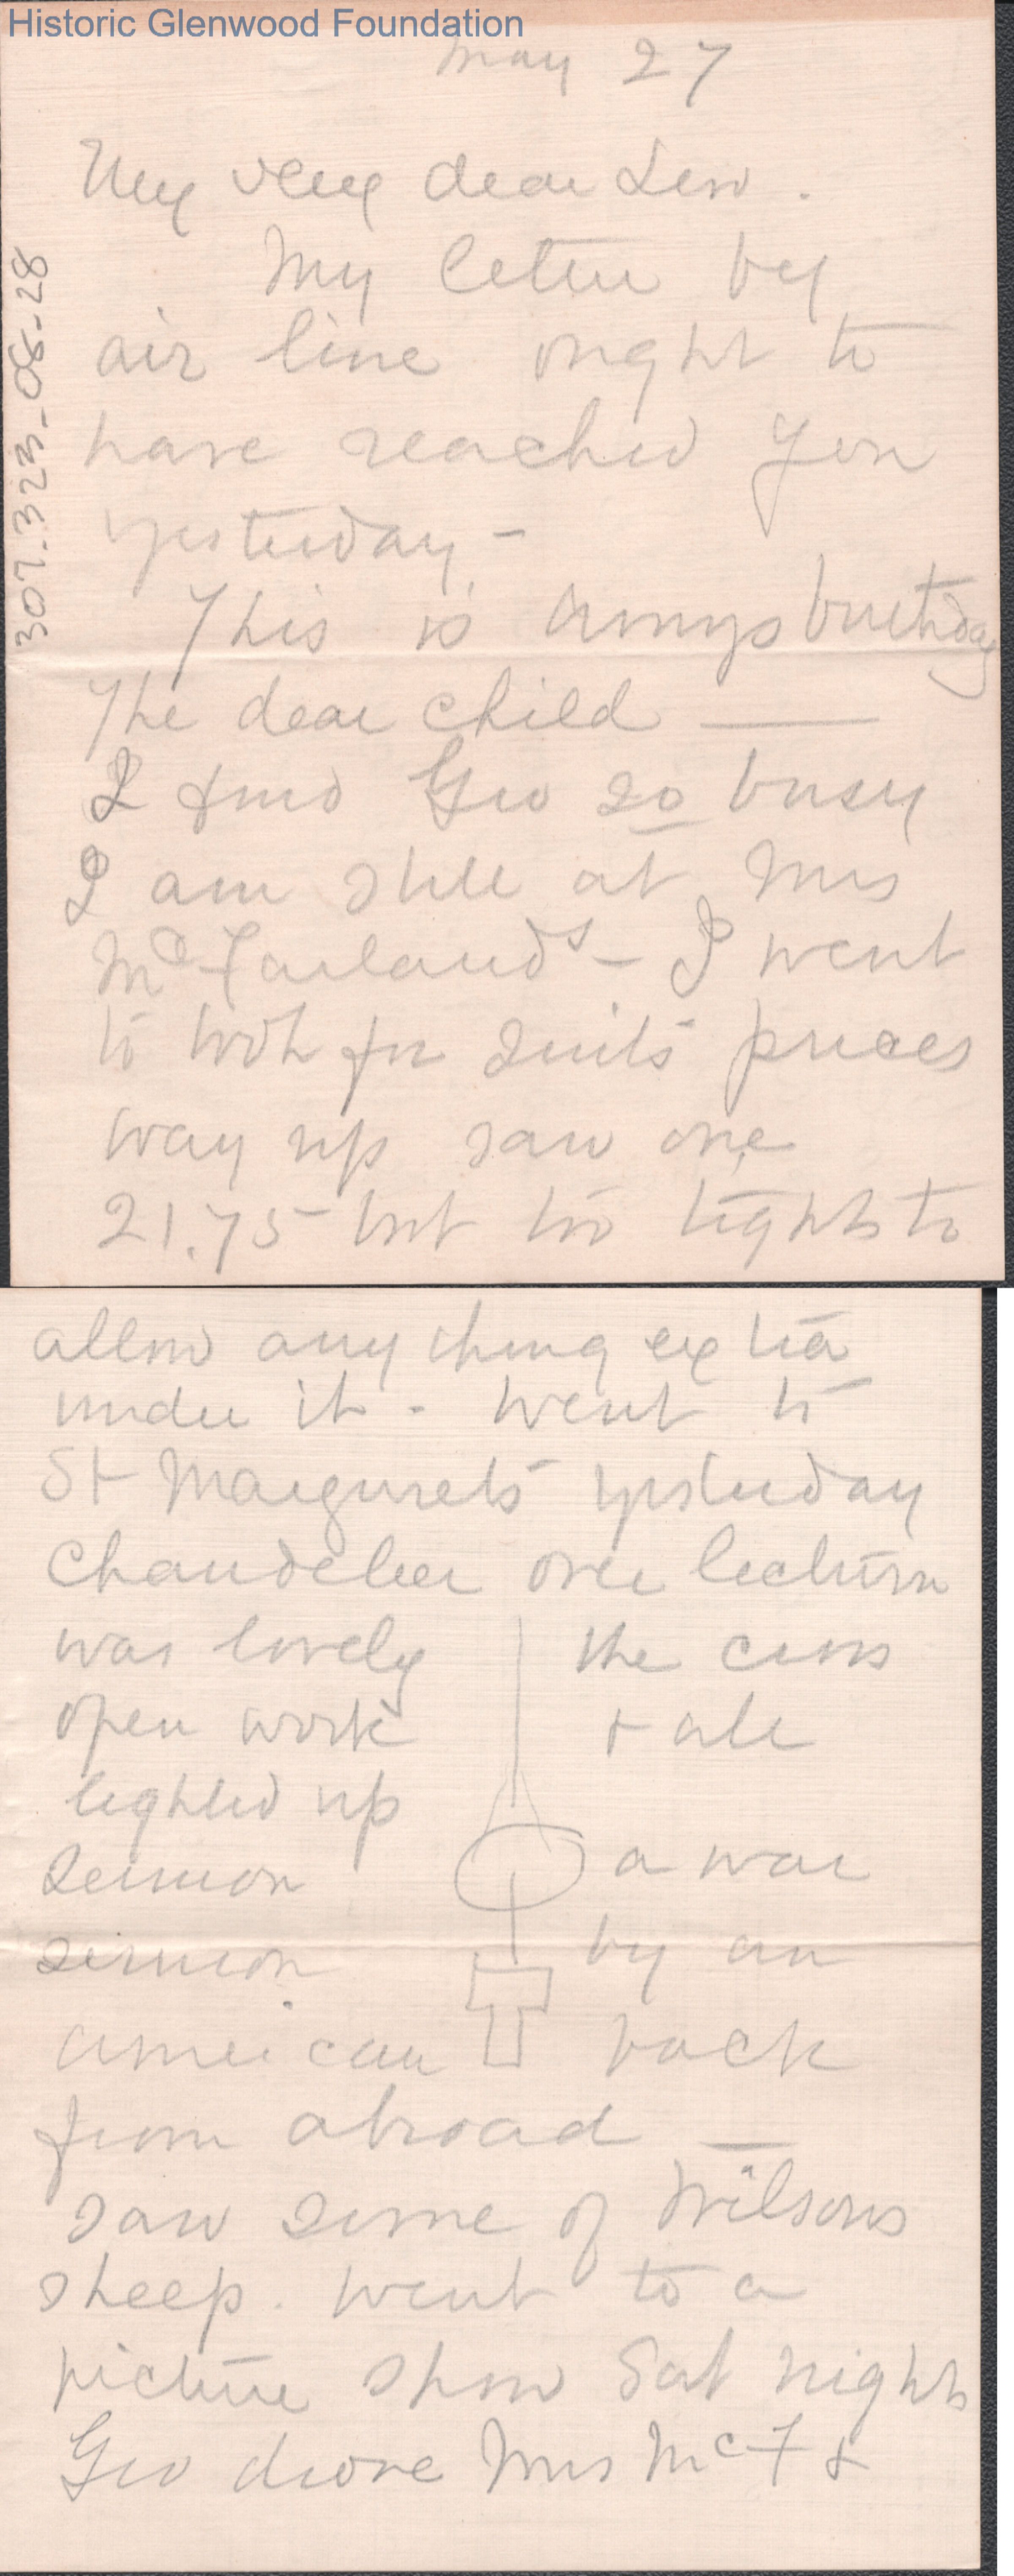 Historic Glenwood Foundation
May 27
307.323-08-28
My very dear Lew.
My letter by
air line ought to
have reached you
yesterday -
This is Amys birthday
The dear child —
I find Geo so busy
I am still at Mrs
McFarlands - I went
to look for suits prices
way up saw one
21.75 but too tight to
allow any thing extra
under it - went to
St Margurets yesterday
Chandelier over lecturn
was lovely the cross
open work + all
lighted up
Sermon a war
sermon by an
American back
from abroad —
saw some of Wilsons
sheep. went to a
picture show Sat night
Geo drove Mrs McF +